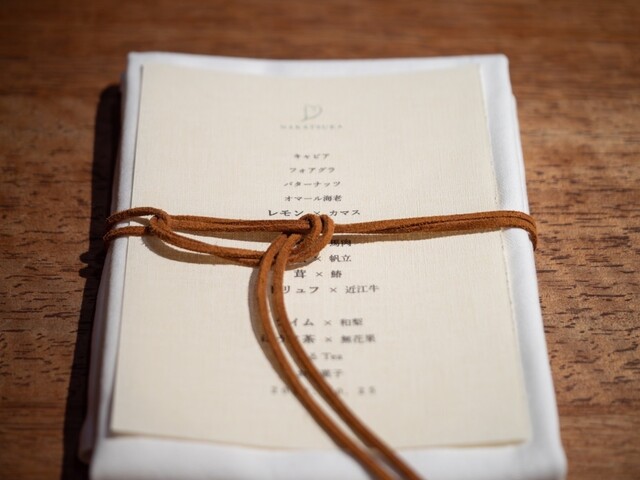 NAKATSUKA
キャビア
フォアグラ
バターナッツ
オマール海老
レモン × カマス
× 帆立
茸 × 鰆
リュフ × 近江牛
イム × 和梨
茶 × 無花果
Tea
菓子